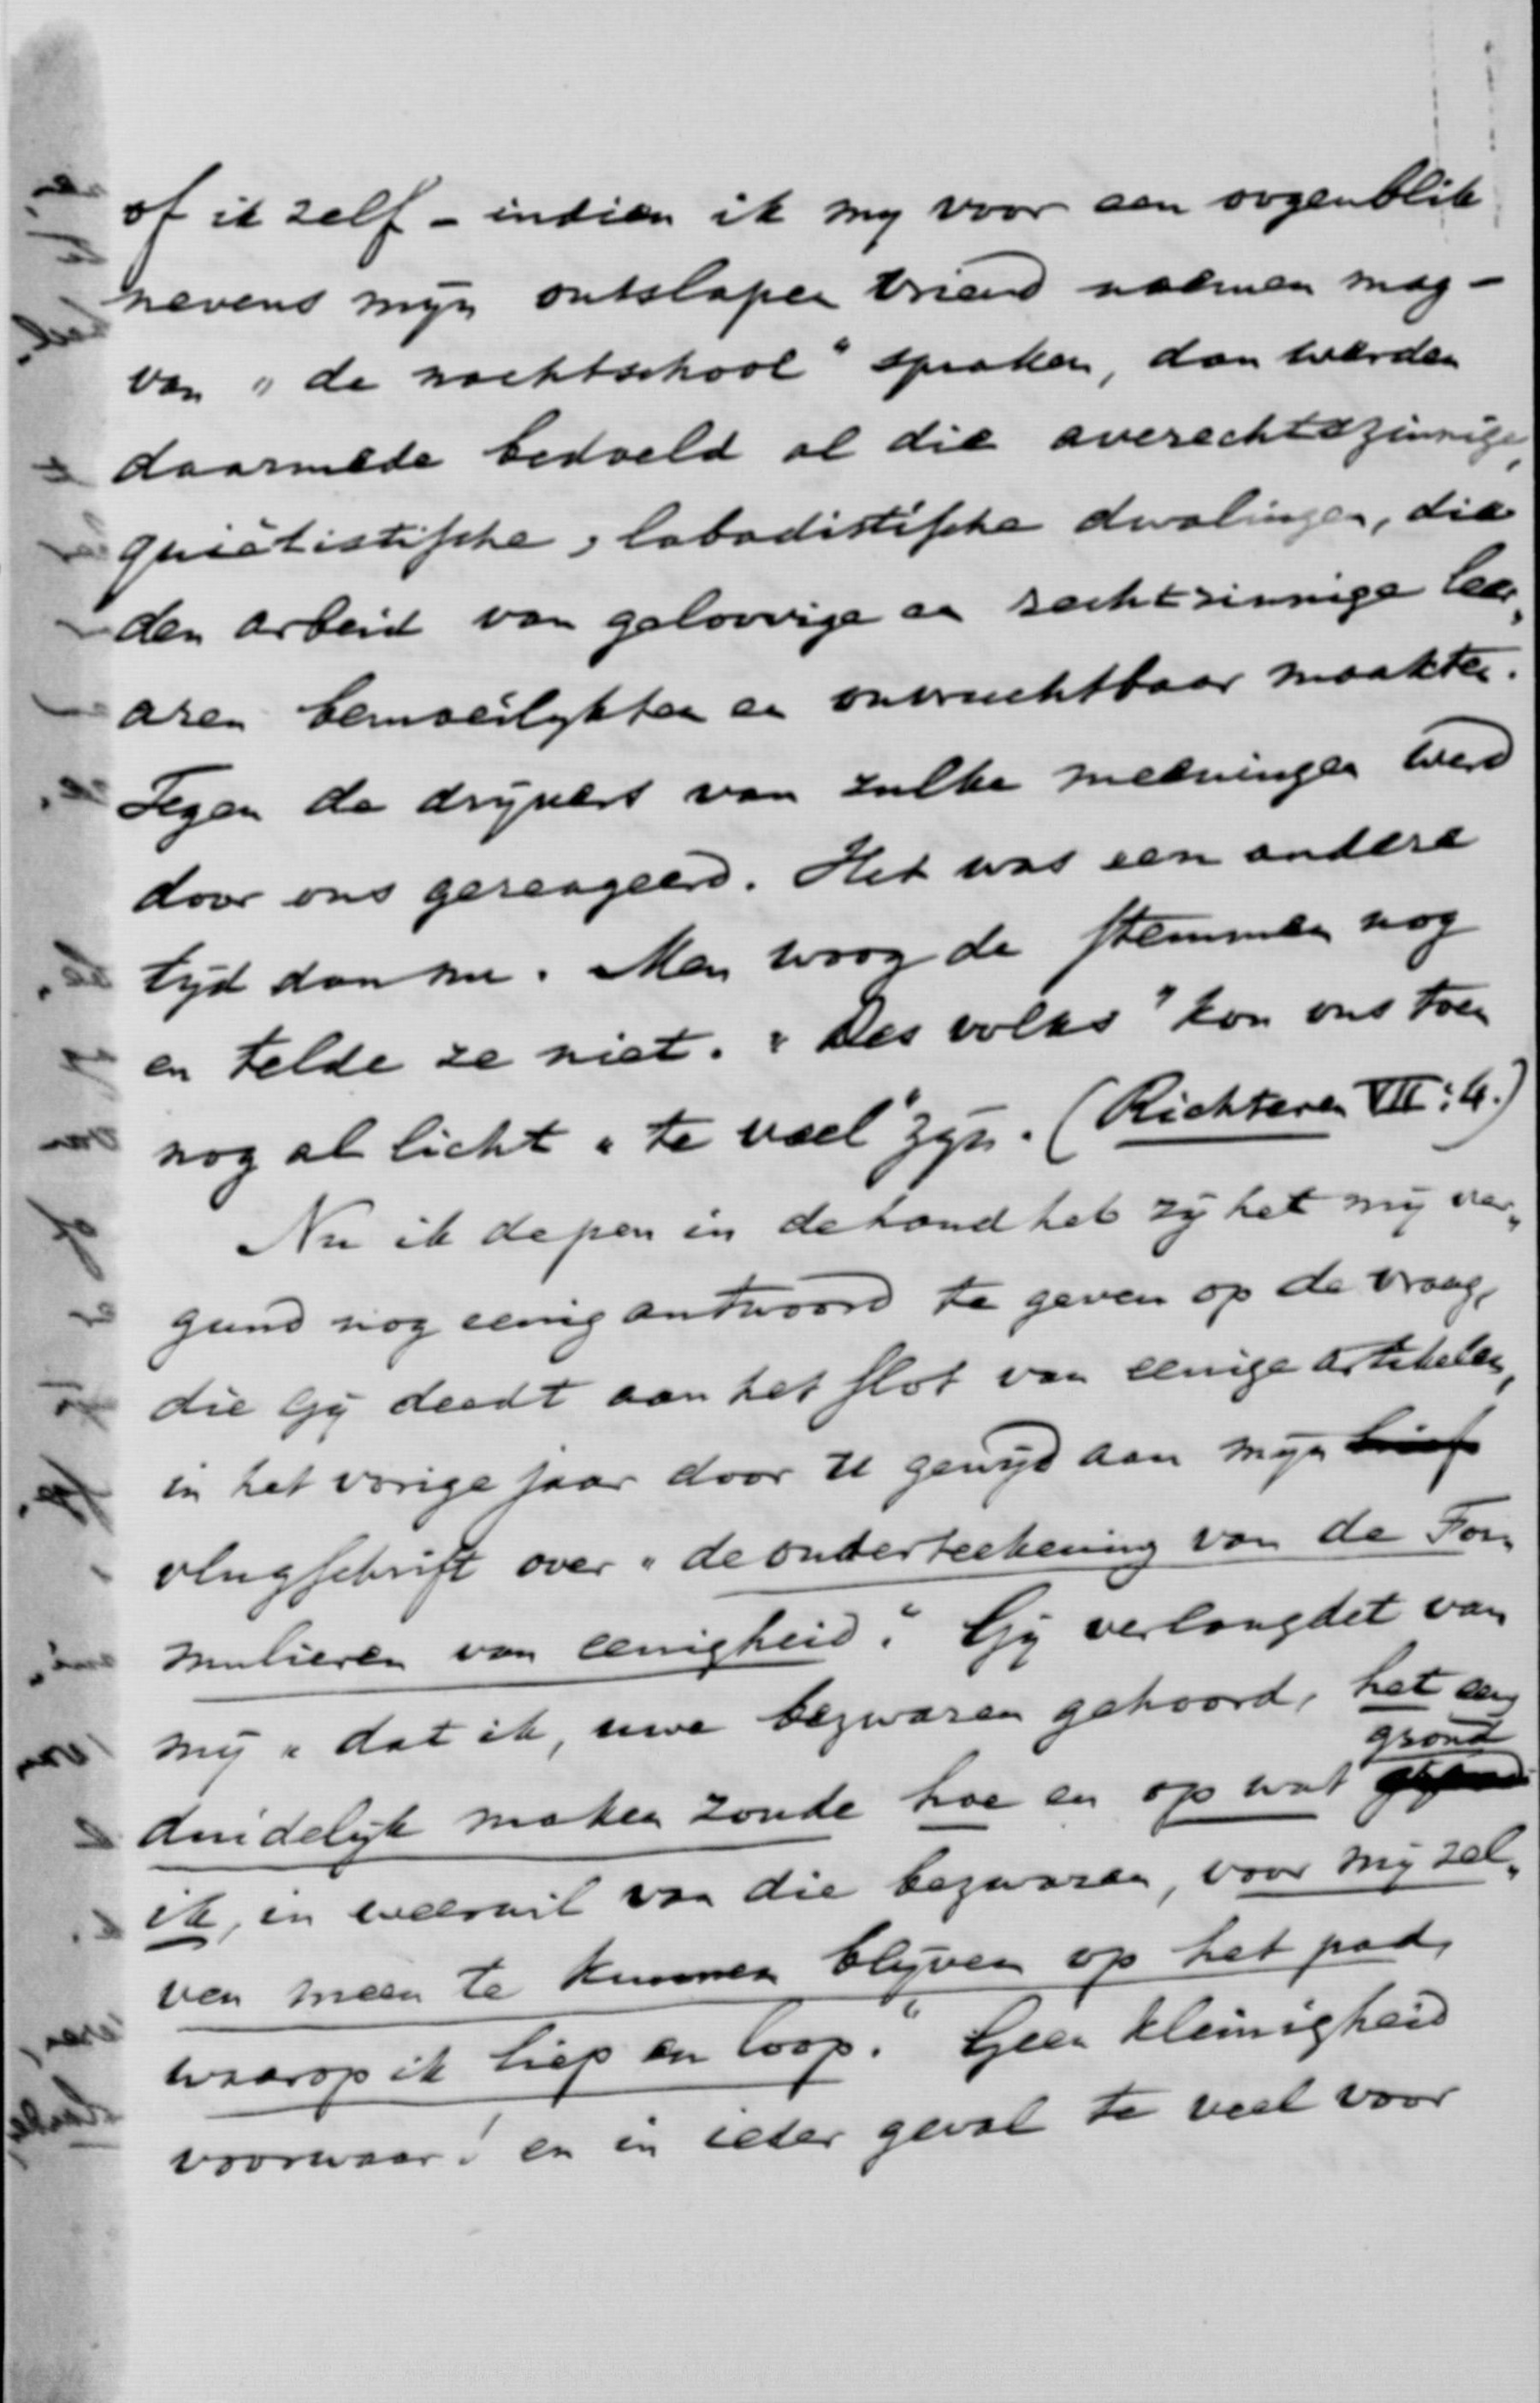 of ik zelf – indien ik my voor een oogenblik
nevens mijn ontslapen vriend noemen mag –
van „de nachtschool" spraken, dan werden
daarmede bedoeld al die averechtszinnige,
quiëtistische, labadistische dwalingen, die
den arbeid van geloovige en rechtzinnige leer„
aren bemoeilykten en onvruchtbaar maakten.
Tegen de dryvers van zulke meeningen werd
door ons gereageerd. Het was een andere
tyd dan nu. Men woog de stemmen nog
en telde ze niet. „Des volks" kon ons toen
nog al licht „te veel" zyn. (Richteren VII:4.)
Nu ik de pen in de hand heb zy het my ver„
gund nog eenig antwoord te geven op de vraag,
die Gy deedt aan het slot van eenige artikelen,
in het vorige jaar door U gewyd aan myn brief
vlugschrift over „de onderteekening van de For„
mulieren van eenigheid." Gy verlangdet van
my „dat ik, uwe bezwaren gehoord, het eens
grond
duidelyk maken zoude hoe en op wat
ik, in weerwil van die bezwaren, voor my zel„
ven meen te kunnen blyven op het pad,
waarop ik liep en loop." Geen kleinigheid
voorwaar! en in ieder geval te veel voor